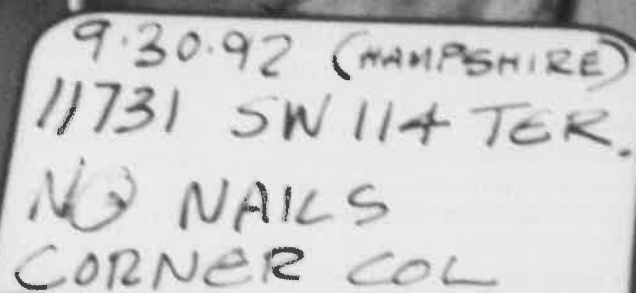 9.30.92 (HAMPSHIRE)
11731 SW 114 TER.
NO NAILS
CORNER COL